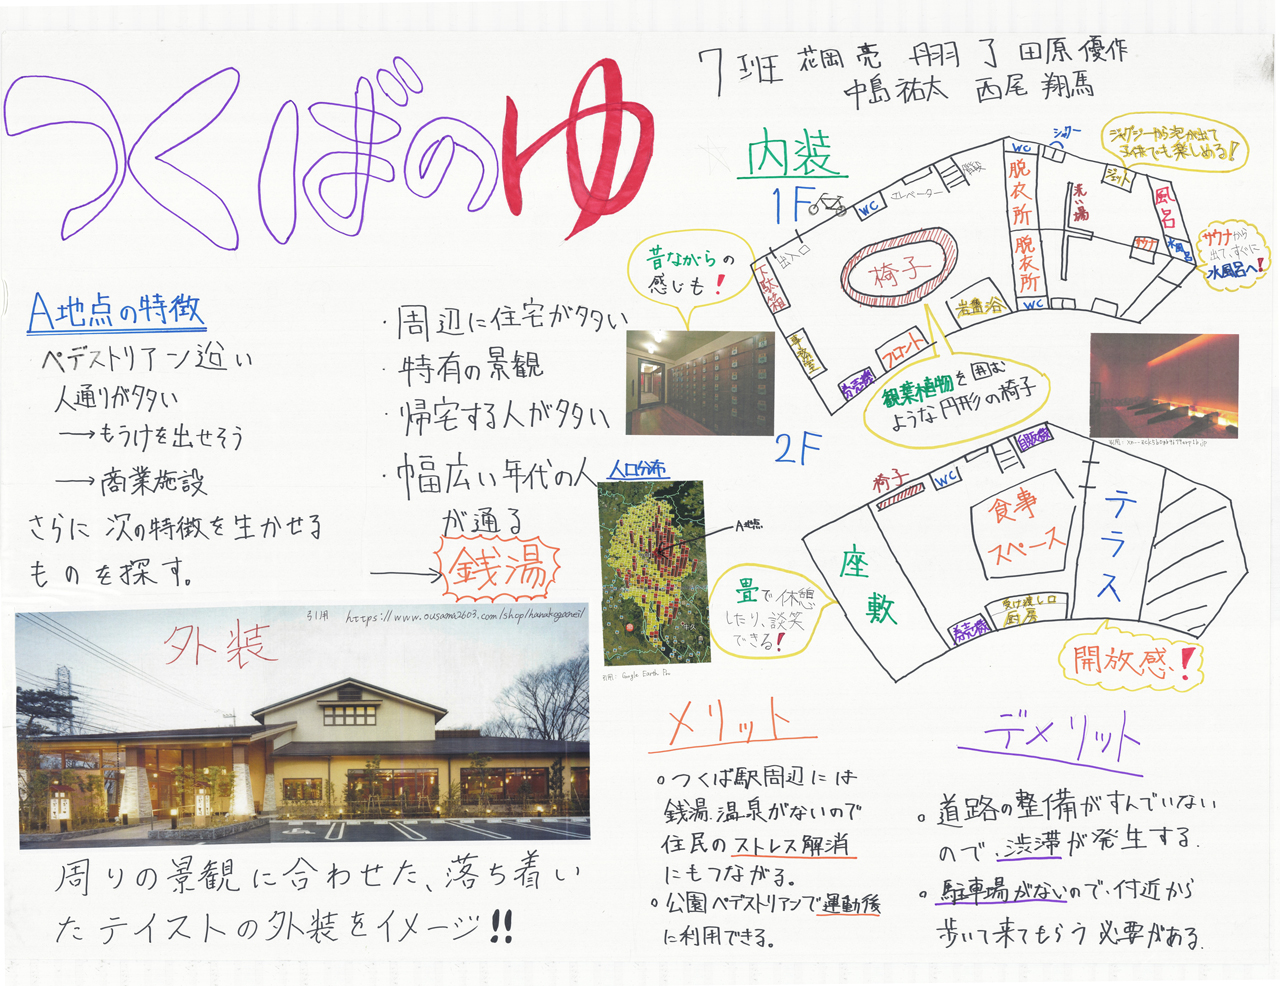 つくばのゆ
7班 花岡 亮 丹羽 了 田原 優作
中島 祐太 西尾 翔馬
A地点の特徴
ペデストリアン沿い
人通りが多い
→もうけを出せそう
→商業施設
さらに次の特徴を生かせる
ものを探す。
・周辺に住宅が多い
・特有の景観
・帰宅する人が多い
・幅広い年代の人
が通る
→銭湯
人口分布
A地点
引用：Google Earth Pro
内装
1F
WC
エレベーター
階段
出入口
下駄箱
事務室
券売機
フロント
岩盤浴
椅子
WC
脱衣所
脱衣所
WC
シャワー
洗い場
ジェット
風呂
サウナ
水風呂
ジャグジーから泡が出て
子供でも楽しめる！
サウナから
出て、すぐに
水風呂へ！
昔ながらの
感じも！
観葉植物を囲む
ような円形の椅子
2F
椅子
WC
自販機
食事
スペース
テラス
座敷
券売機
受け渡し口
厨房
畳で休憩
したり、談笑
できる！
開放感！
外装
引用 https://www.ousama2603.com/shop/hanakoganei/
周りの景観に合わせた、落ち着い
たテイストの外装をイメージ!!
メリット
○つくば駅周辺には
銭湯、温泉がないので
住民のストレス解消
にもつながる。
○公園ペデストリアンで運動後
に利用できる。
デメリット
○道路の整備がすんでいない
ので、渋滞が発生する。
○駐車場がないので、付近から
歩いて来てもらう必要がある。